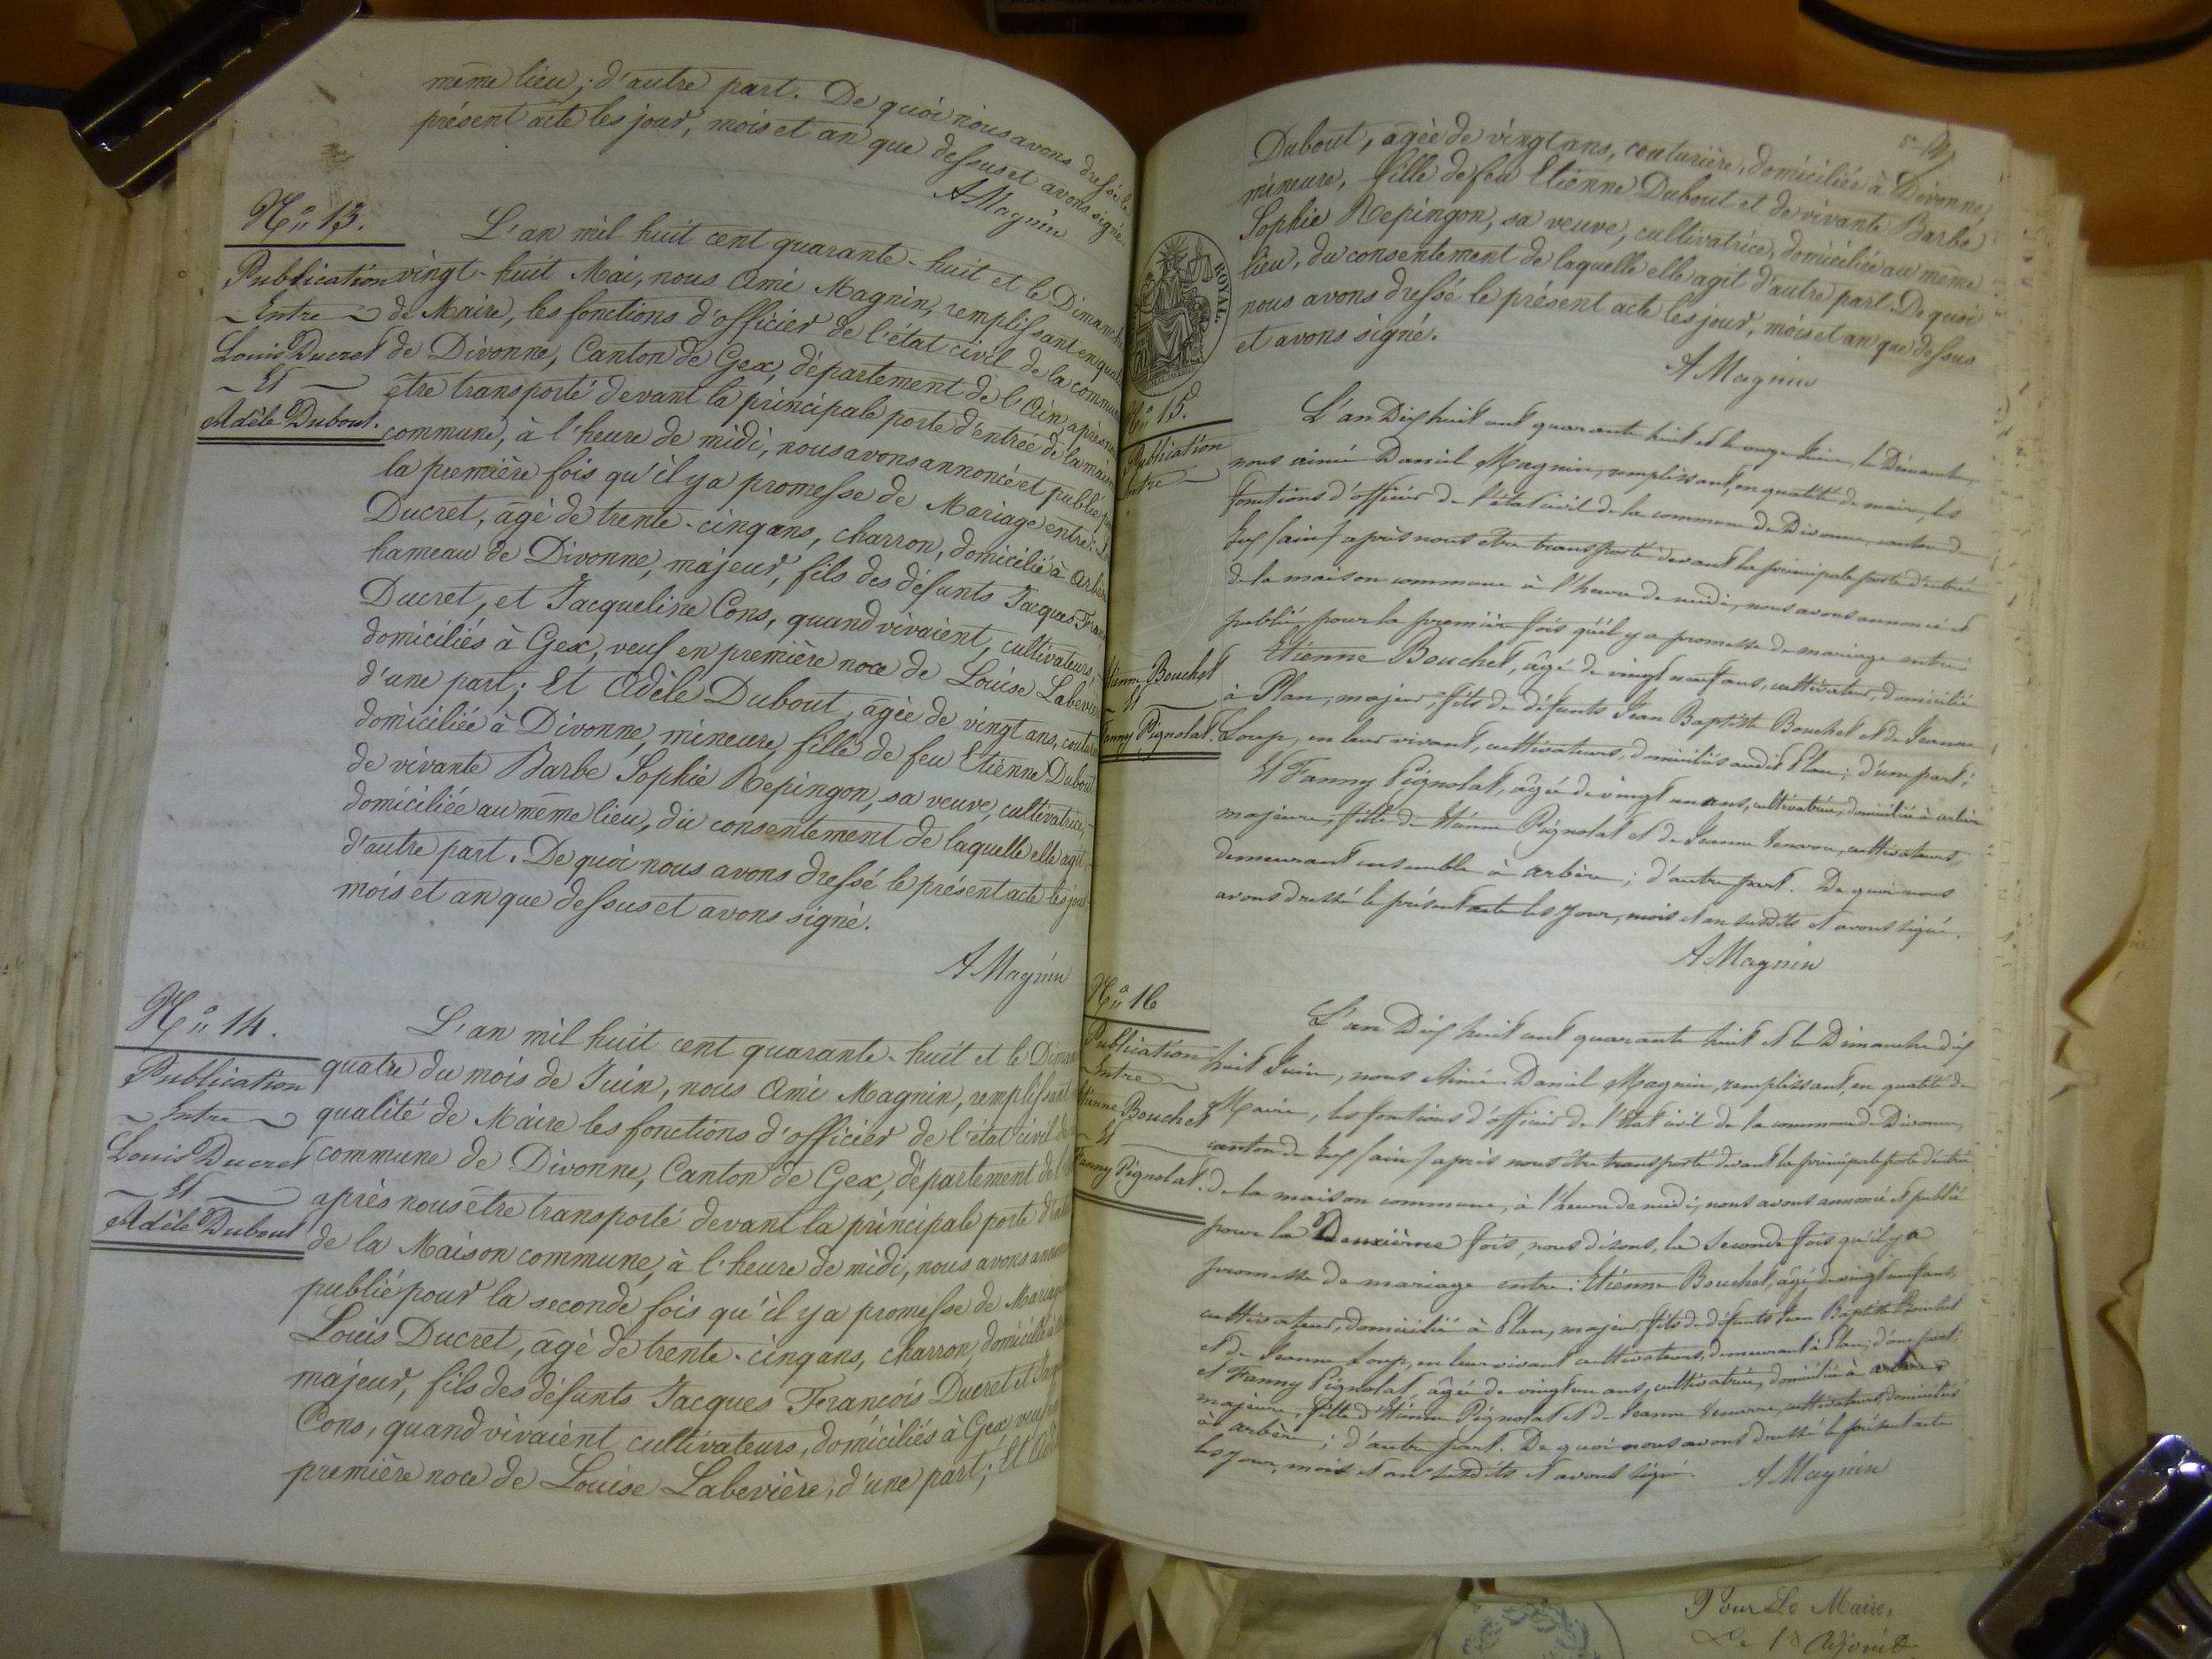 même lieu; d'autre part. De quoi nous avons dressé le
présent acte les jour, mois et an que dessus et avons signé.
AMagnin
Nº 13.
Publication
Entre
Louis Ducret
Et
Adèle Dubout.
L'an mil huit cent quarante-huit et le Dimanche
vingt-huit Mai, nous Ami Magnin, remplissant en qualité
de Maire, les fonctions d'officier de l'état civil de la commune
de Divonne, Canton de Gex, département de l'Ain, après nous
être transporté devant la principale porte d'entrée de la maison
commune, à l'heure de midi, nous avons annoncé et publié pour
la première fois qu'il y a promesse de Mariage entre: Louis
Ducret, âgé de trente-cinq ans, charron, domicilié à Arbère
hameau de Divonne, majeur, fils des défunts Jacques François
Ducret, et Jacqueline Cons, quand vivaient, cultivateurs,
domiciliés à Gex, veuf en première noce de Louise Labevière
d'une part; Et Adèle Dubout, âgée de vingt ans, couturière
domiciliée à Divonne, mineure, fille de feu Etienne Dubout
de vivante Barbe Sophie Repingon, sa veuve, cultivatrice,
domiciliée au même lieu, du consentement de laquelle elle agit
d'autre part. De quoi nous avons dressé le présent acte les jour
mois et an que dessus et avons signé.
AMagnin
Nº 14.
Publication
Entre
Louis Ducret
Et
Adèle Dubout
L'an mil huit cent quarante-huit et le Dimanche
quatre du mois de Juin, nous Ami Magnin, remplissant
qualité de Maire les fonctions d'officier de l'état civil de la
commune de Divonne, Canton de Gex, département de l'
après nous être transporté devant la principale porte d'entrée
de la Maison commune, à l'heure de midi, nous avons annoncé
publié pour la seconde fois qu'il y a promesse de Mariage
Louis Ducret, âgé de trente-cinq ans, charron, domicilié à
majeur, fils des défunts Jacques François Ducret et Jacq
Cons, quand vivaient cultivateurs, domiciliés à Gex, veuf en
première noce de Louise Labevière, d'une part; Et Adèle
Dubout, âgée de vingt ans, couturière, domiciliée à Divonne,
mineure, fille de feu Etienne Dubout et de vivante Barbe
Sophie Repingon, sa veuve, cultivatrice, domiciliée au même
lieu, du consentement de laquelle elle agit d'autre part. De quoi
nous avons dressé le présent acte les jour, mois et an que dessus
et avons signé.
AMagnin
ROYAL.
Nº 15.
Publication
Entre
Etienne Bouchet
Et
Fanny Pignolat.
L'an Dix huit cent quarante huit et le onze Juin, le Dimanche,
nous aimé Daniel Magnin, remplissant, en qualité de maire, les
fonctions d'officier de l'état civil de la commune de Divonne, canton de
Gex (ain) après nous etre transporté devant la principale porte d'entrée
de la maison commune à l'heure de midi, nous avons annoncé et
publié pour la première fois qu'il y a promesse de mariage entre:
Etienne Bouchet, âgé de vingt neuf ans, cultivateur, domicilié
à Plan, majeur, fils de défunts Jean Baptiste Bouchet et de Jeanne
Loup, en leur vivant, cultivateurs, domiciliés audit Plan; d'une part;
Et Fanny Pignolat, âgée de vingt un ans, cultivatrice, domiciliée à arbère
majeure, fille de Etienne Pignolat et de Jeanne cultivateurs,
demeurant ensemble à arbère; d'autre part. De quoi nous
avons dressé le présent acte les jour, mois et an susdits et avons signé.
AMagnin
Nº 16
Publication
Entre
Etienne Bouchet
Et
Fanny Pignolat.
L'an Dix huit cent quarante huit et le Dimanche dix
huit Juin, nous Aimé Daniel Magnin, remplissant, en qualité de
Maire, les fonctions d'officier de l'état civil de la commune de Divonne,
canton de Gex (ain) après nous être transporté devant la principale porte d'entrée
de la maison commune, à l'heure de midi, nous avons annoncé et publié
pour la Deuxième fois, nous disons, la seconde fois qu'il y a
promesse de mariage entre: Etienne Bouchet, âgé de vingt neuf ans,
cultivateur, domicilié à Plan, majeur, fils de défunts Jean Baptiste Bouchet
et de Jeanne Loup, en leur vivant cultivateurs, demeurant à Plan; d'une part:
et Fanny Pignolat, âgée de vingt un ans, cultivatrice, domiciliée à arbère,
majeure, fille d'Etienne Pignolat et de Jeanne cultivateurs, domiciliés
à arbère; d'autre part. De quoi nous avons dressé le présent acte
les jour, mois et an susdits et avons signé. AMagnin
Pour Le Maire,
Le 1er Adjoint